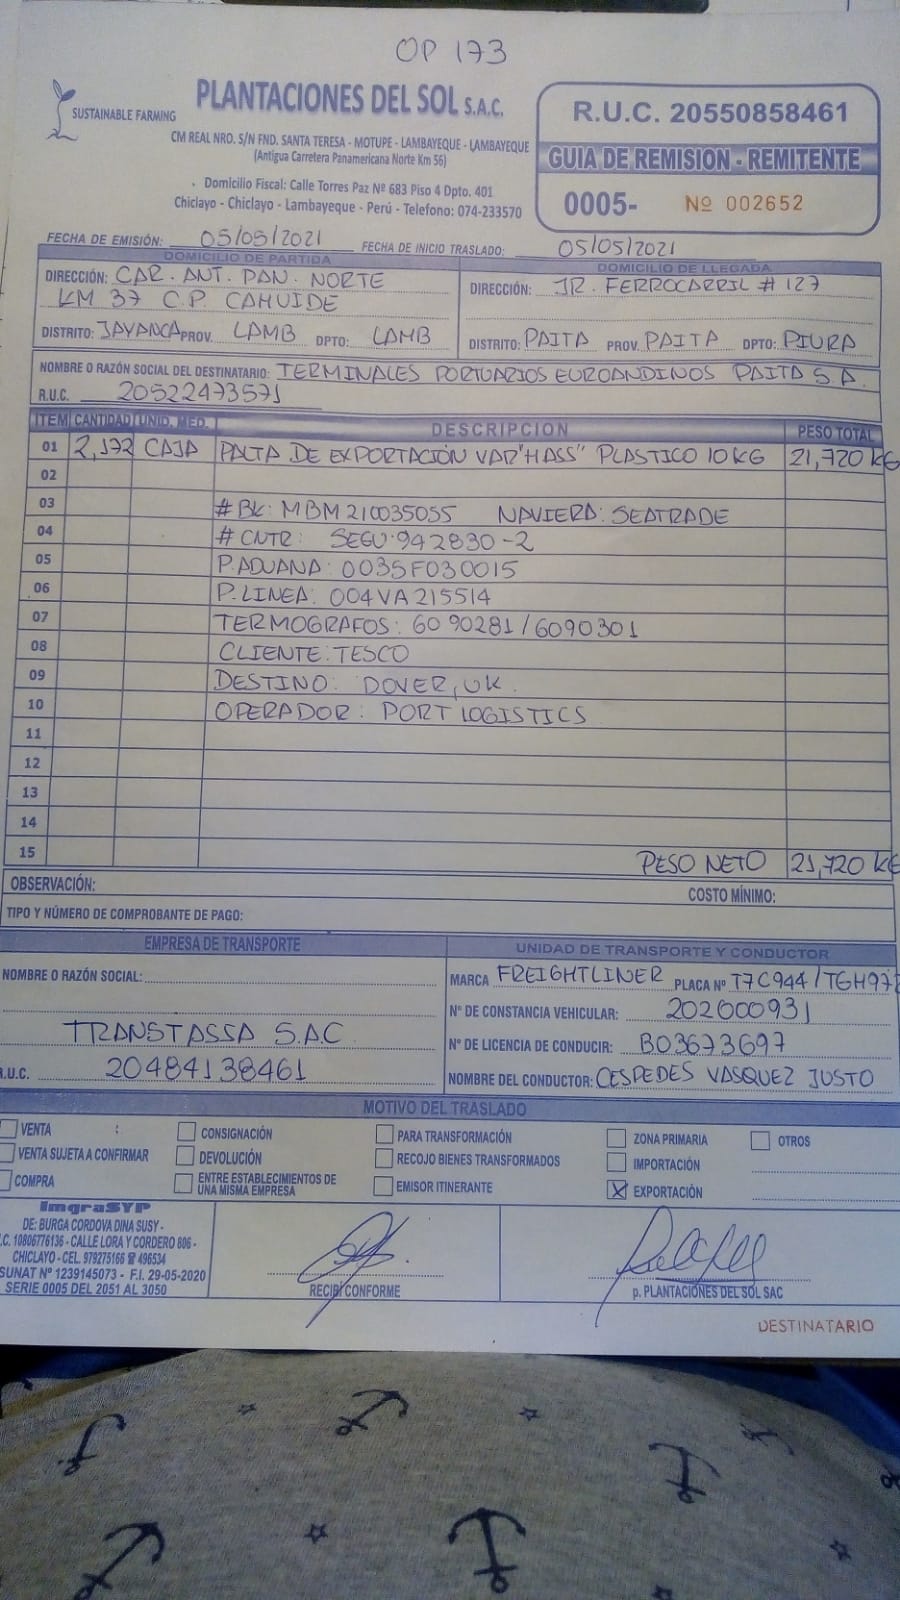 OP 173
SUSTAINABLE FARMING
PLANTACIONES DEL SOL S.A.C.
CM REAL NRO. S/N FND. SANTA TERESA - MOTUPE - LAMBAYEQUE - LAMBAYEQUE
(Antigua Carretera Panamericana Norte Km 56)
Domicilio Fiscal: Calle Torres Paz Nº 683 Piso 4 Dpto. 401
Chiclayo - Chiclayo - Lambayeque - Perú - Telefono: 074-233570
R.U.C. 20550858461
GUIA DE REMISION - REMITENTE
0005- Nº 002652
FECHA DE EMISIÓN: 05/05/2021 FECHA DE INICIO TRASLADO: 05/05/2021
DOMICILIO DE PARTIDA
DIRECCIÓN: CAR. ANT. PAN. NORTE
KM 37 C.P. CAHUIDE
DISTRITO: JAYANCA PROV. LAMB DPTO: LAMB
DOMICILIO DE LLEGADA
DIRECCIÓN: JR. FERROCARRIL # 127
DISTRITO: PAITA PROV. PAITA DPTO: PIURA
NOMBRE O RAZÓN SOCIAL DEL DESTINATARIO: TERMINALES PORTUARIOS EUROANDINOS PAITA S.A.
R.U.C. 20522473571
ITEM CANTIDAD UNID. MED. DESCRIPCION PESO TOTAL
01 2,172 CAJA PALTA DE EXPORTACIÓN VAR "HASS" PLASTICO 10KG 21,720 KG
02
03 #BK: MBM210035055 NAVIERA: SEATRADE
04 # CNTR: SEGU 942830-2
05 P.ADUANA: 0035F030015
06 P.LINEA: 004VA215514
07 TERMOGRAFOS: 6090281/6090301
08 CLIENTE: TESCO
09 DESTINO: DOVER, UK.
10 OPERADOR: PORT LOGISTICS
11
12
13
14
15 PESO NETO 21,720 KG
OBSERVACIÓN:
COSTO MÍNIMO:
TIPO Y NÚMERO DE COMPROBANTE DE PAGO:
EMPRESA DE TRANSPORTE
NOMBRE O RAZÓN SOCIAL:
TRANSTASSA S.A.C
R.U.C. 20484138461
UNIDAD DE TRANSPORTE Y CONDUCTOR
MARCA FREIGHTLINER PLACA Nº T7C944/TGH97
Nº DE CONSTANCIA VEHICULAR: 202000931
Nº DE LICENCIA DE CONDUCIR: B03673697
NOMBRE DEL CONDUCTOR: CESPEDES VASQUEZ JUSTO
MOTIVO DEL TRASLADO
VENTA CONSIGNACIÓN PARA TRANSFORMACIÓN ZONA PRIMARIA OTROS
VENTA SUJETA A CONFIRMAR DEVOLUCIÓN RECOJO BIENES TRANSFORMADOS IMPORTACIÓN
COMPRA ENTRE ESTABLECIMIENTOS DE UNA MISMA EMPRESA EMISOR ITINERANTE X EXPORTACIÓN
ImgraSYP
DE: BURGA CORDOVA DINA SUSY -
.C. 10806776136 - CALLE LORA Y CORDERO 806 -
CHICLAYO - CEL. 979275166 ☎ 496534
SUNAT Nº 1239145073 - F.I. 29-05-2020
SERIE 0005 DEL 2051 AL 3050
RECIBÍ CONFORME
p. PLANTACIONES DEL SOL SAC
DESTINATARIO